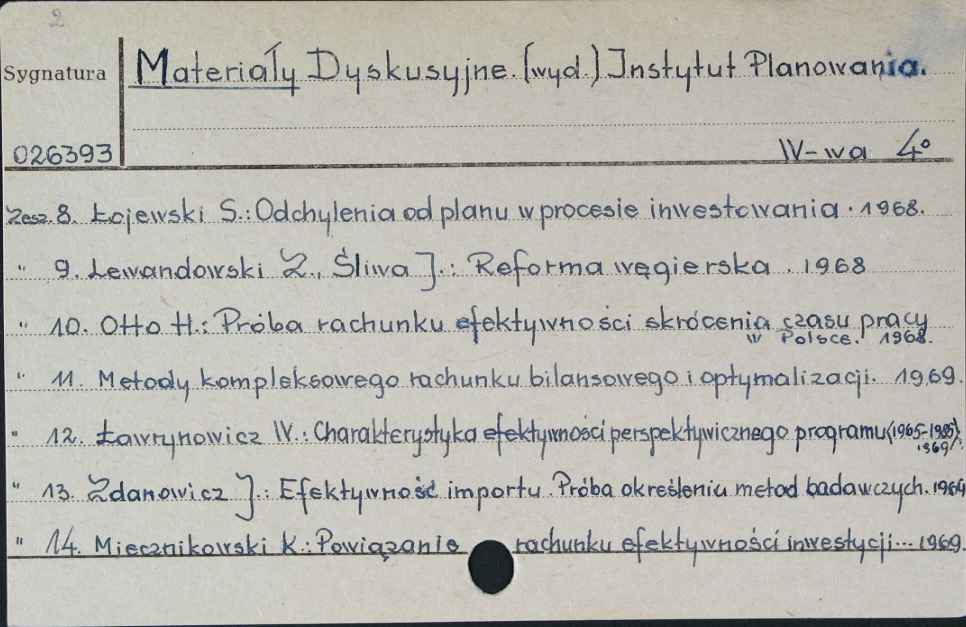 2
Sygnatura Materiały Dyskusyjne. (wyd.) Instytut Planowania.
026393 W-wa 4°
Zesz. 8. Łojewski S.: Odchylenia od planu w procesie inwestowania. 1968.
" 9. Lewandowski Z., Śliwa J.: Reforma węgierska. 1968
" 10. Otto H.: Próba rachunku efektywności skrócenia czasu pracy
w Polsce. 1968.
" 11. Metody kompleksowego rachunku bilansowego i optymalizacji. 1969.
" 12. Ławrynowicz W.: Charakterystyka efektywności perspektywicznego programu (1965-1985).
1969.
" 13. Zdanowicz J.: Efektywność importu. Próba określeniu metod badawczych. 1969
" 14. Miecznikowski K.: Powiązanie rachunku efektywności inwestycji... 1969.